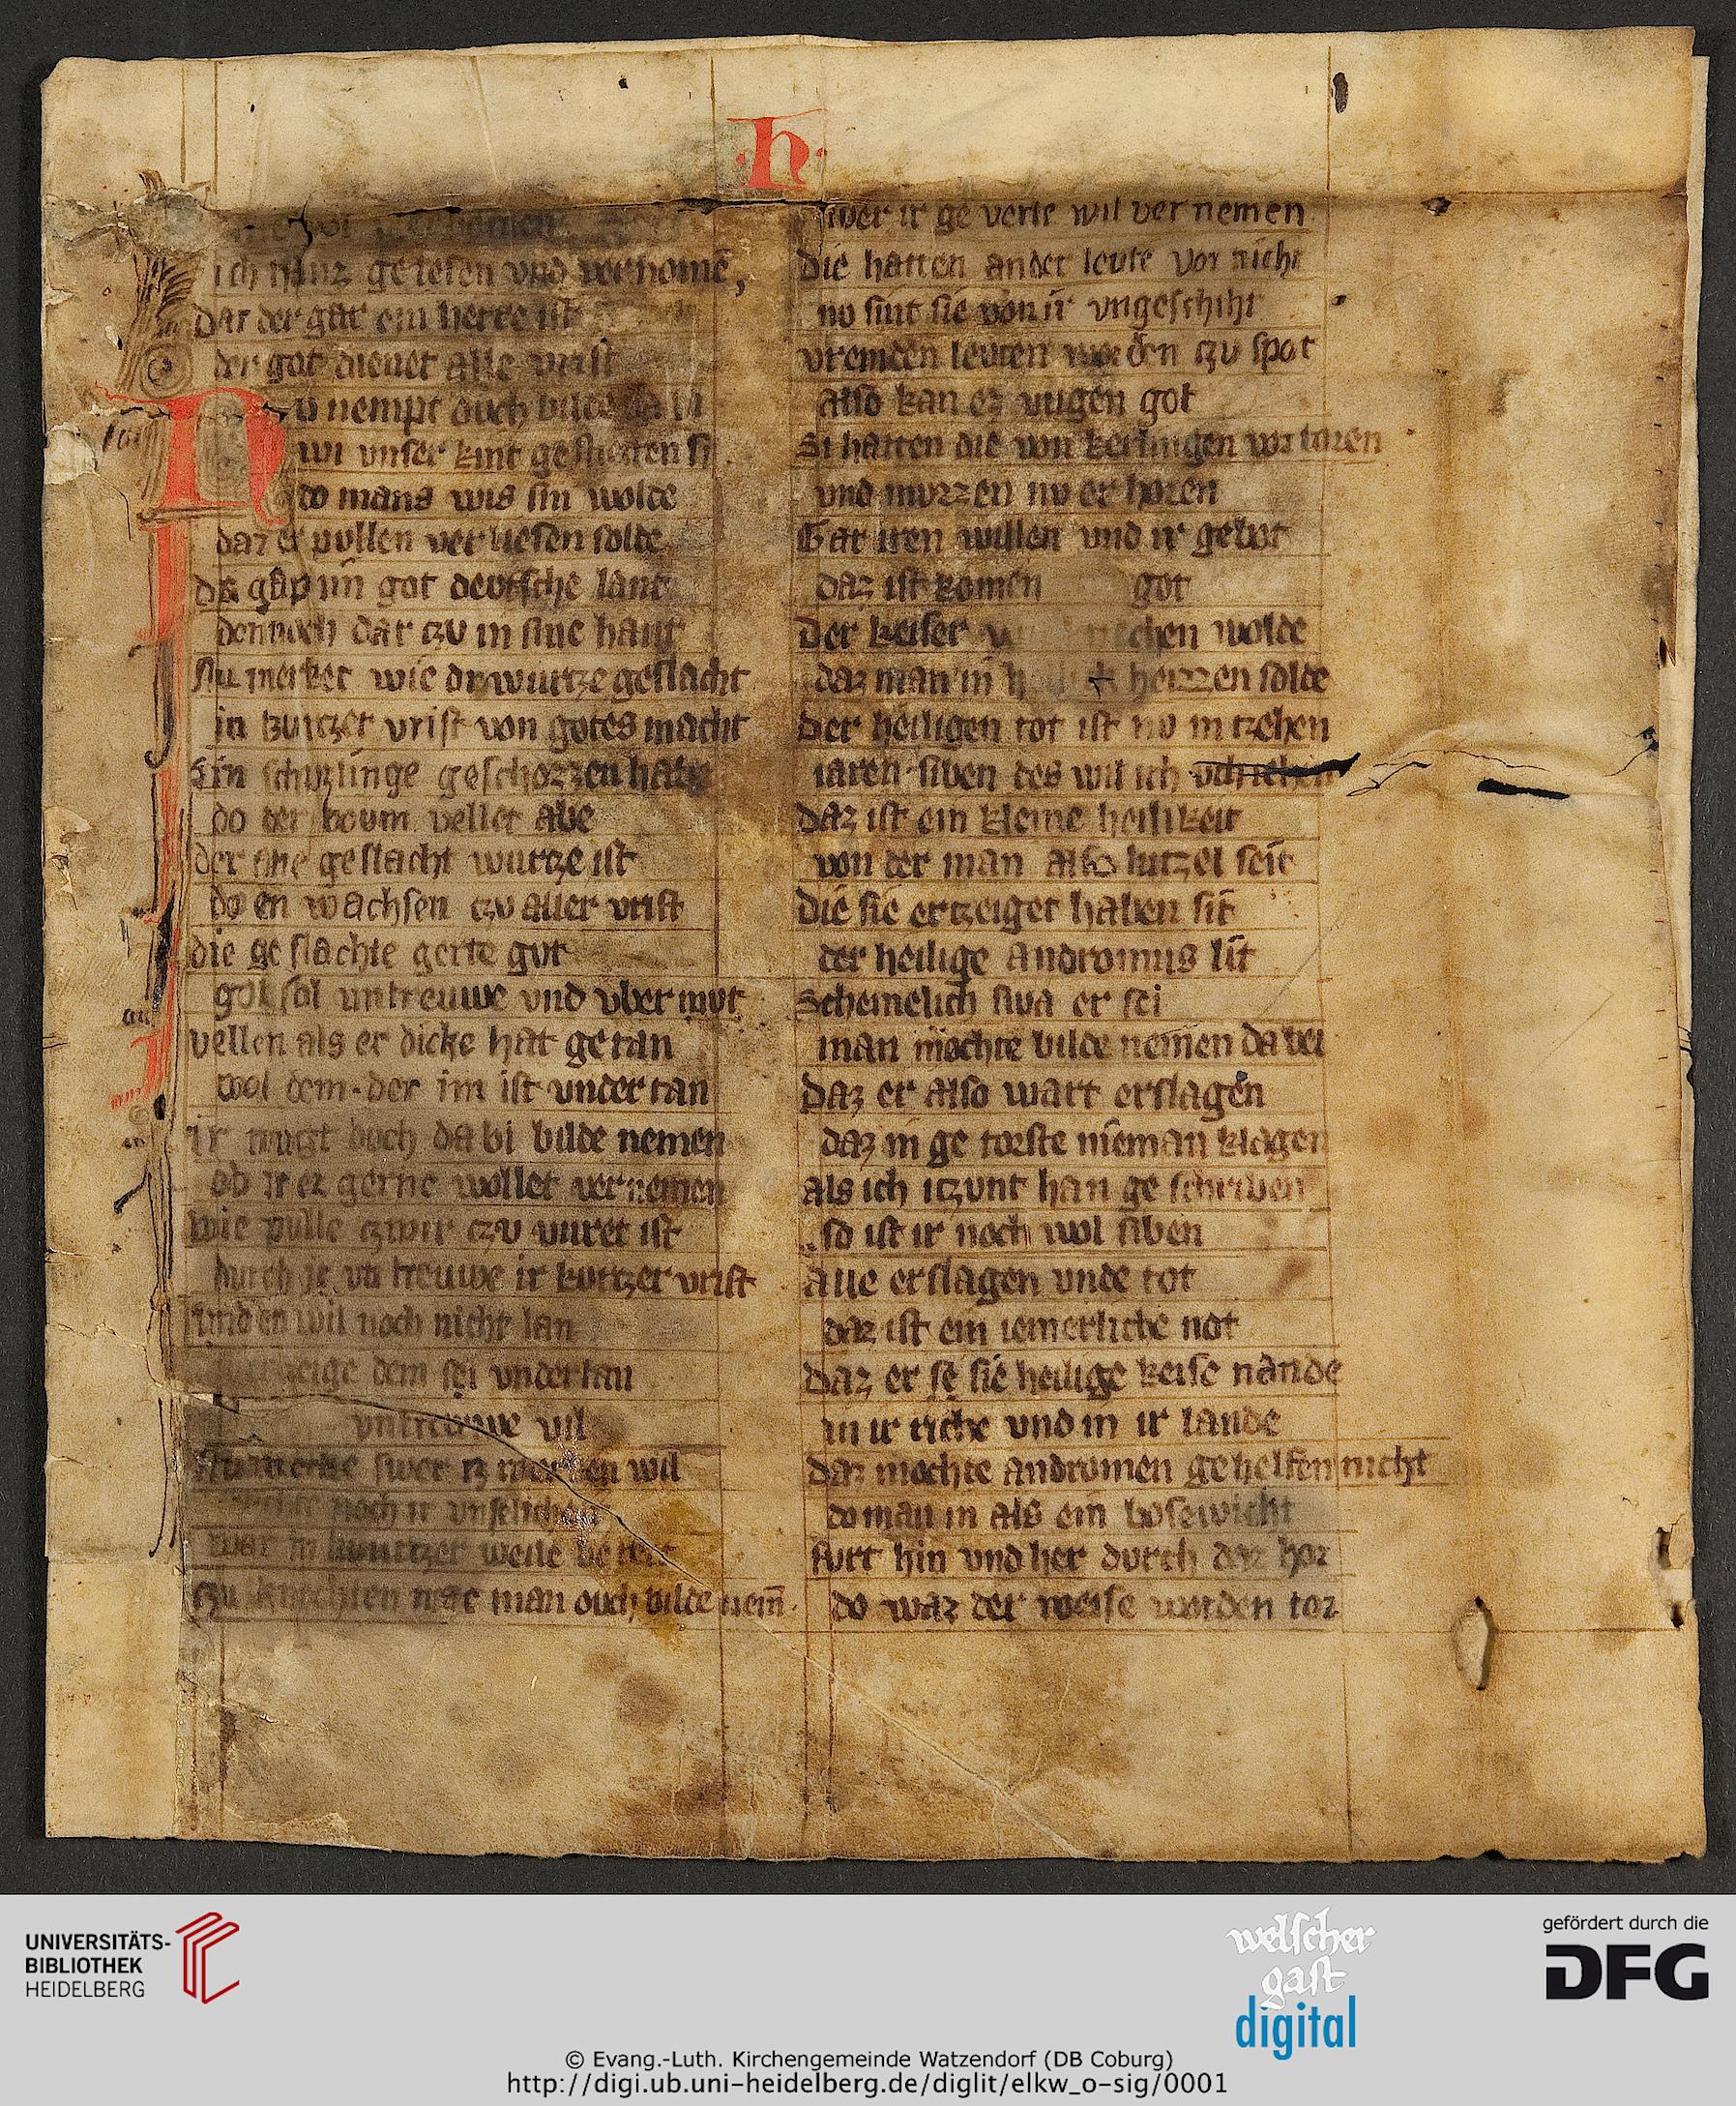 ·h·
vernomen
ich han iz gelesen vnd vernomē,
Daz der gar ein herre ist
der got dienet alle vrist
NU nempt ouch bilde da bi
wi vnser kint gestigen si
do mans wis sin wolde
daz er pullen verliesen solde
do gap im got deutsche lant
dennoch dar czv in sine hant
Nu merket wie dv wurtze geslacht
in kurtzer vrist von gotes macht
Ein schuzlinge geschozzen habe
do der boum vellet abe
der ane geslacht wurtze ist
do en wachsen czv aller vrist
die ge slachte gerte gvt
got sol untreuwe vnd vber mvt
vellen als er dicke hat getan
wol dem · der im ist vnder tan
ir mugt doch da bi bilde nemen
ob ir ez gerne wollet vernemen
wie pulle czwir czv vuret ist
durch ir vn treuwe ir kortzer vrist
und en wil noch nicht lan
dem sei vndertan
vntreuwe vil
Nu merke swer iz merken wil
noch ir vnselicheit
war in kurtzer weile bereit
czu kriechen mac man ouch bilde nem̄
swer ir ge verte wil ver nemen
Die hatten ander leute vor nicht
nv sint sie von ir vngeschiht
vremden leuten worden czv spot
Also kan ez vugen got
Si hatten die von kerlingen vor toren
vnd muzzen nv er horen
Gar iren willen vnd ir gebot
daz ist komen got
Der keiser chen wolde
daz man in heizzen solde
Der heiligen tot ist nv in tzehen
iaren siben des wil ich
Daz ist ein kleine heilikeit
von der man also lutzel seit
Die sie ertzeiget haben sit
der heilige Andromus lit
Schemelich swa er sei
man mochte bilde nemen da bei
Daz er also wart erslagen
daz in ge torste nieman klagen
als ich itzvnt han ge schriben
so ist ir noch wol siben
alle erslagen vnde tot
daz ist ein iemerliche not
Daz er se sie heilige keise nande
in ir riche vnd in ir lande
Daz mochte andromen gehelfen nicht
do man in als ein bosewicht
furt hin vnd her durch daz hor
do waz der weise worden tor
UNIVERSITÄTS-
BIBLIOTHEK
HEIDELBERG
welscher
gast
digital
gefördert durch die
DFG
© Evang.-Luth. Kirchengemeinde Watzendorf (DB Coburg)
http://digi.ub.uni-heidelberg.de/diglit/elkw_o-sig/0001